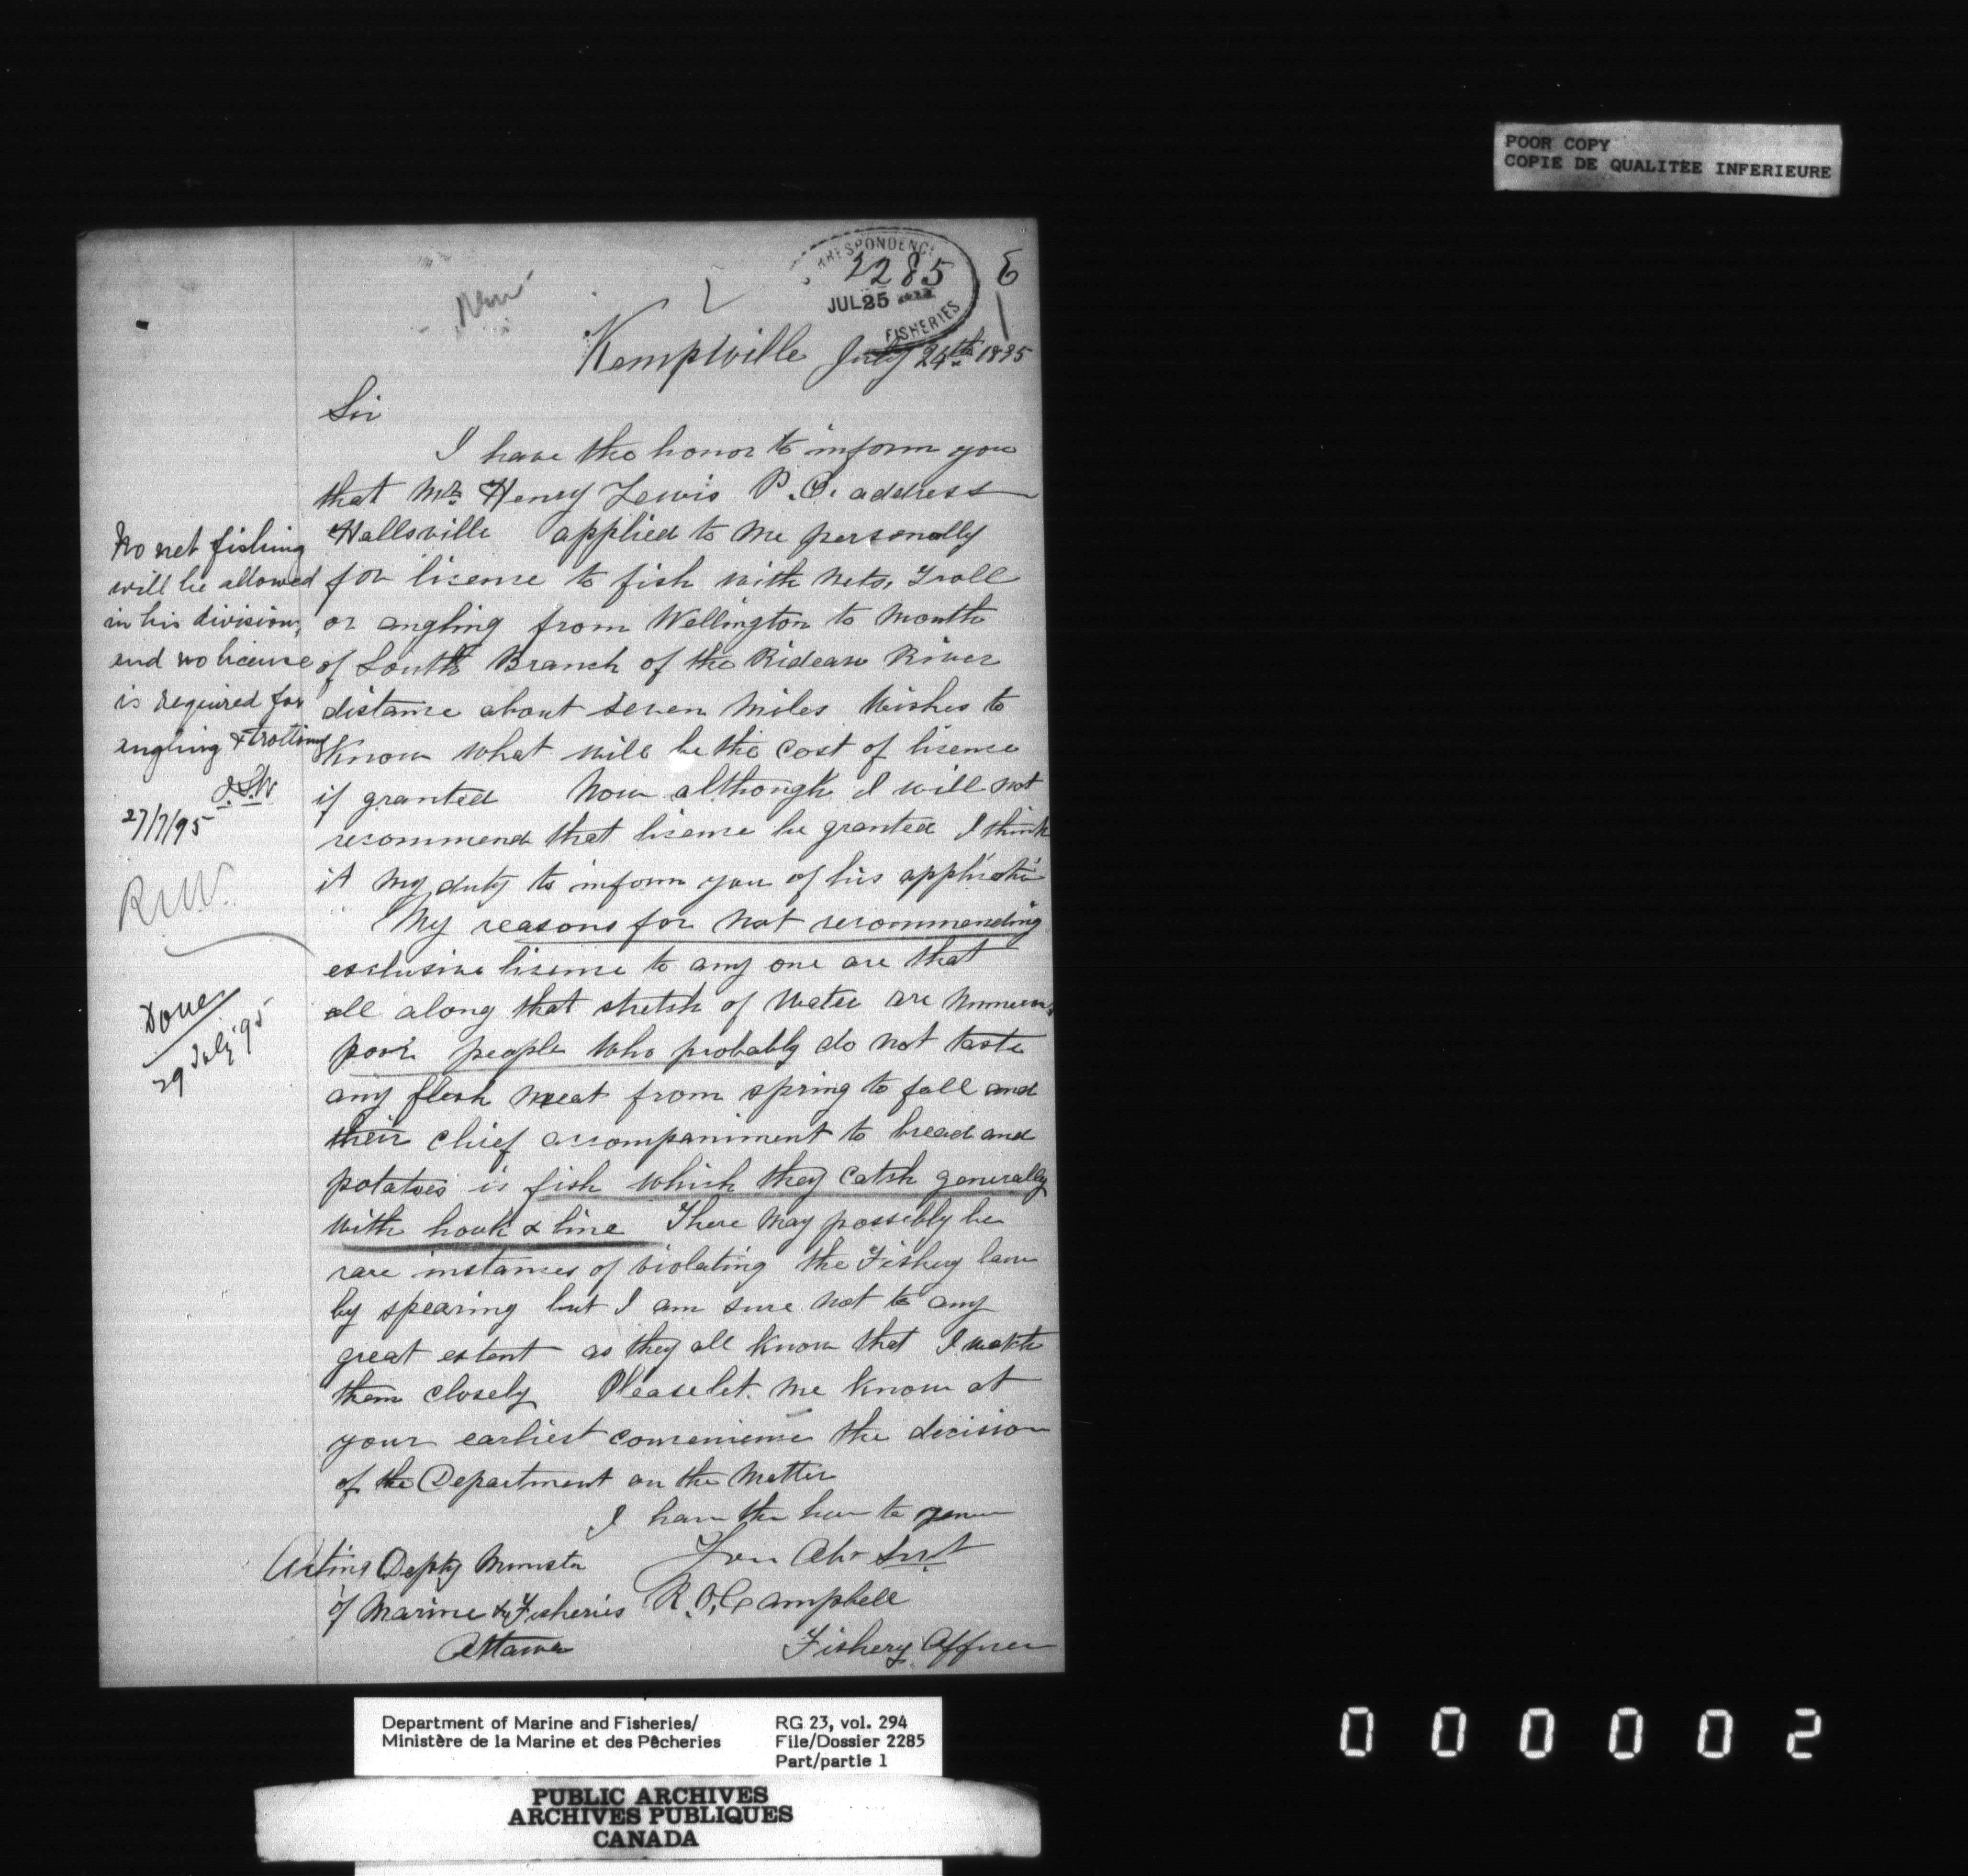 POOR COPY
COPIE DE QUALITEE INFERIEURE
New
CORRESPONDENCE
2285
JUL 25
FISHERIES
Kemptville July 24th 1895
Sir
I have the honor to inform you
that Mr Henry Lewis P.O. address
Hallsville applied to me personally
for lisense to fish with nets, Troll
or angling from Wellington to mouth
of South Branch of the Rideau River
distance about seven miles Wishes to
Know what will be the cost of lisense
if granted Now although I will not
recommend that lisense be granted I think
it my duty to inform you of his applicatin
My reasons for not recommending
exclusive lisense to any one are that
all along that stretch of water are numerous
poor people who probably do not taste
any flesh meat from spring to fall and
their chief accompaniment to bread and
potatoes is fish which they catch generally
with hook & line There may possibly be
rare instances of violating the Fishery law
by spearing but I am sure not to any
great extent as they all know that I watch
them closely Please let me know at
your earliest convenience the decision
of the Department on the matter
I have the honor to remain
Your Obt Servt
R.O. Campbell
Fishery Officer
Acting Depty Minister
of Marine & Fisheries
Ottawa
No net fishing
will be allowed
in his division,
and no license
is required for
angling & trolling
27/7/95
Done
29 July '95
Department of Marine and Fisheries/
Ministère de la Marine et des Pêcheries
RG 23, vol. 294
File/Dossier 2285
Part/partie 1
PUBLIC ARCHIVES
ARCHIVES PUBLIQUES
CANADA
000002